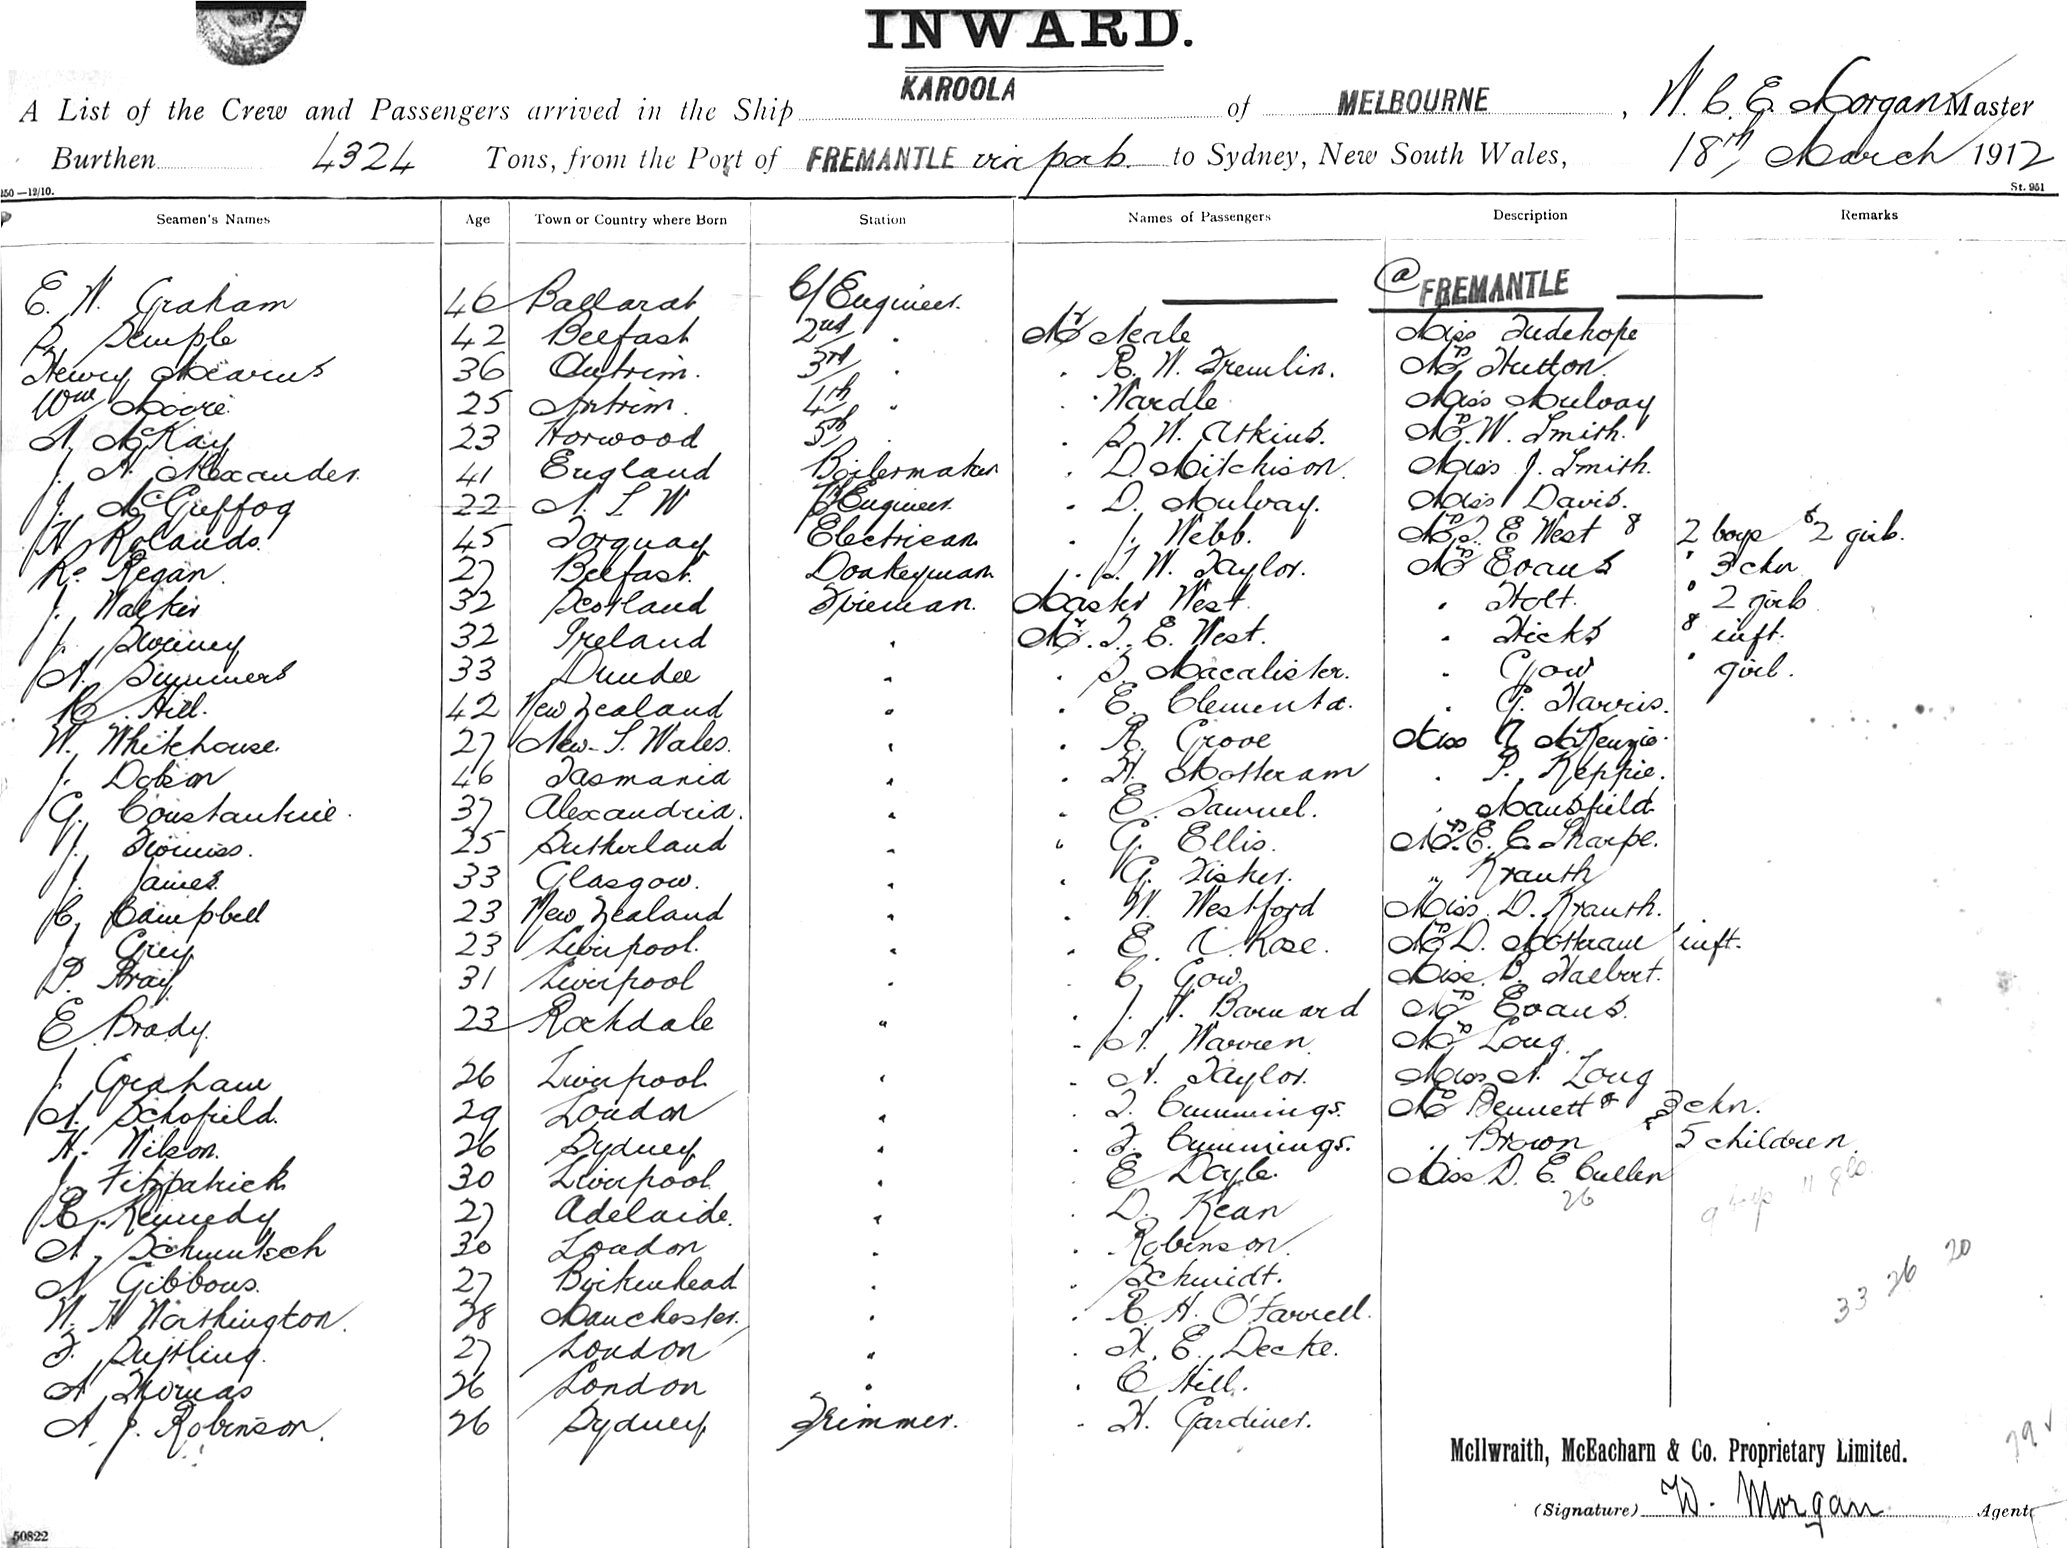 INWARD.
KAROOLA
A List of the Crew and Passengers arrived in the Ship KAROOLA of MELBOURNE, W. C. E. Morgan Master
Burthen 4324 Tons, from the Port of FREMANTLE via ports to Sydney, New South Wales, 18th March 1912
150 —12/10. St. 951
Seamen's Names Age Town or Country where Born Station Names of Passengers Description Remarks
@ FREMANTLE
E. W. Graham 46 Ballarat C/Engineer
Semple 42 Belfast 2nd " Mr Neale Miss Tudehope
Henry Mearns 36 Antrim. 3rd " " R. W. Tremlin. Mrs Hutton
Wm Moore 25 Antrim. 4th " " Wardle Miss Mulvay
A. McKay 23 Norwood 5th " " S. W. Atkins. Mrs W. Smith.
J. A. Alexander. 41 England Boilermaker " D. Mitchison. Miss J. Smith.
J. McGuffog 22 N. S. W Engineer " D. Mulvay. Miss Davis.
H. Rolands. 45 Torquay Electrician " J. Webb. Mrs T. E West & 2 boys & 2 girls.
Regan. 27 Belfast. Donkeyman " S. W. Taylor. Mrs Evans " 3 chn
J. Walker 32 Scotland Fireman. Master West. " Holt. " 2 girls
J. Sweeney 32 Ireland " Mr. T. E. West. " Hicks & inft.
A. Summers 33 Dundee " " S. Macalister. " Gow " girl.
Hill. 42 New Zealand " " E. Clements. " G. Harris.
W. Whitehouse. 27 New S. Wales. " " R. Grove Miss McKenzie.
J. Dobson 46 Tasmania " " H. Mottram " P. Keppie.
G. Constantine. 37 Alexandria. " " E. Samuel. " Mansfield
J. 25 Sutherland " " G. Ellis. Mrs. E. C. Sharpe.
J. James. 33 Glasgow. " " G. Fisher. " Krauth
C. Campbell 23 New Zealand " " W. Westford Miss. D. Krauth.
J. Grey 23 Liverpool. " " E. A. Rose. Mrs D. Mottram inft.
P. Bray 31 Liverpool " " C. Gow. Miss B. Halbert.
E. Brady. 23 Rochdale " " J. Barnard Mrs Evans.
" A. Warren. Mrs Long.
J. Graham 26 Liverpool " " A. Taylor. Miss A. Long
A. Schofield. 29 London " " T. Cummings. Mrs Bennett & 3 chn.
H. Wilson. 26 Sydney " " F. Cummings. " Brown & 5 children.
J. Fitzpatrick 30 Liverpool " " E Doyle. Miss D. E. Cullen
Kennedy 27 Adelaide. " " D. Kean 26 9 boys 11 gls.
A. 30 London " " Robinson.
A Gibbons. 27 Birkenhead " " Schmidt.
W. H Worthington. 28 Manchester. " " H. O'Farrell. 33 26 20
F. 27 London " " H. E. Decke.
A. Thomas 26 London " " C Hill.
A. J. Robinson. 26 Sydney Trimmer. " H. Gardiner.
79 ✓
McIlwraith, McEacharn & Co. Proprietary Limited.
(Signature) W. Morgan Agent
50822